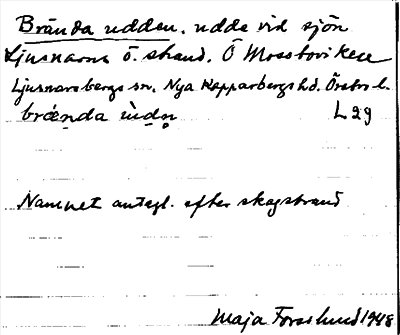 Brända udden, udde vid sjön
Ljusnarns ö. strand, Ö Mossboviken
Ljusnarsbergs sn. Nya Kopparbergs hd. Örebro l.
brǽnda ùdn̥ L29
Namnet antagl. efter skogsbrand
Maja Forslund 1948